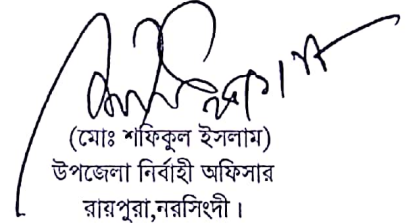 (মোঃ শফিকুল ইসলাম)
উপজেলা নির্বাহী অফিসার
রায়পুরা,নরসিংদী।